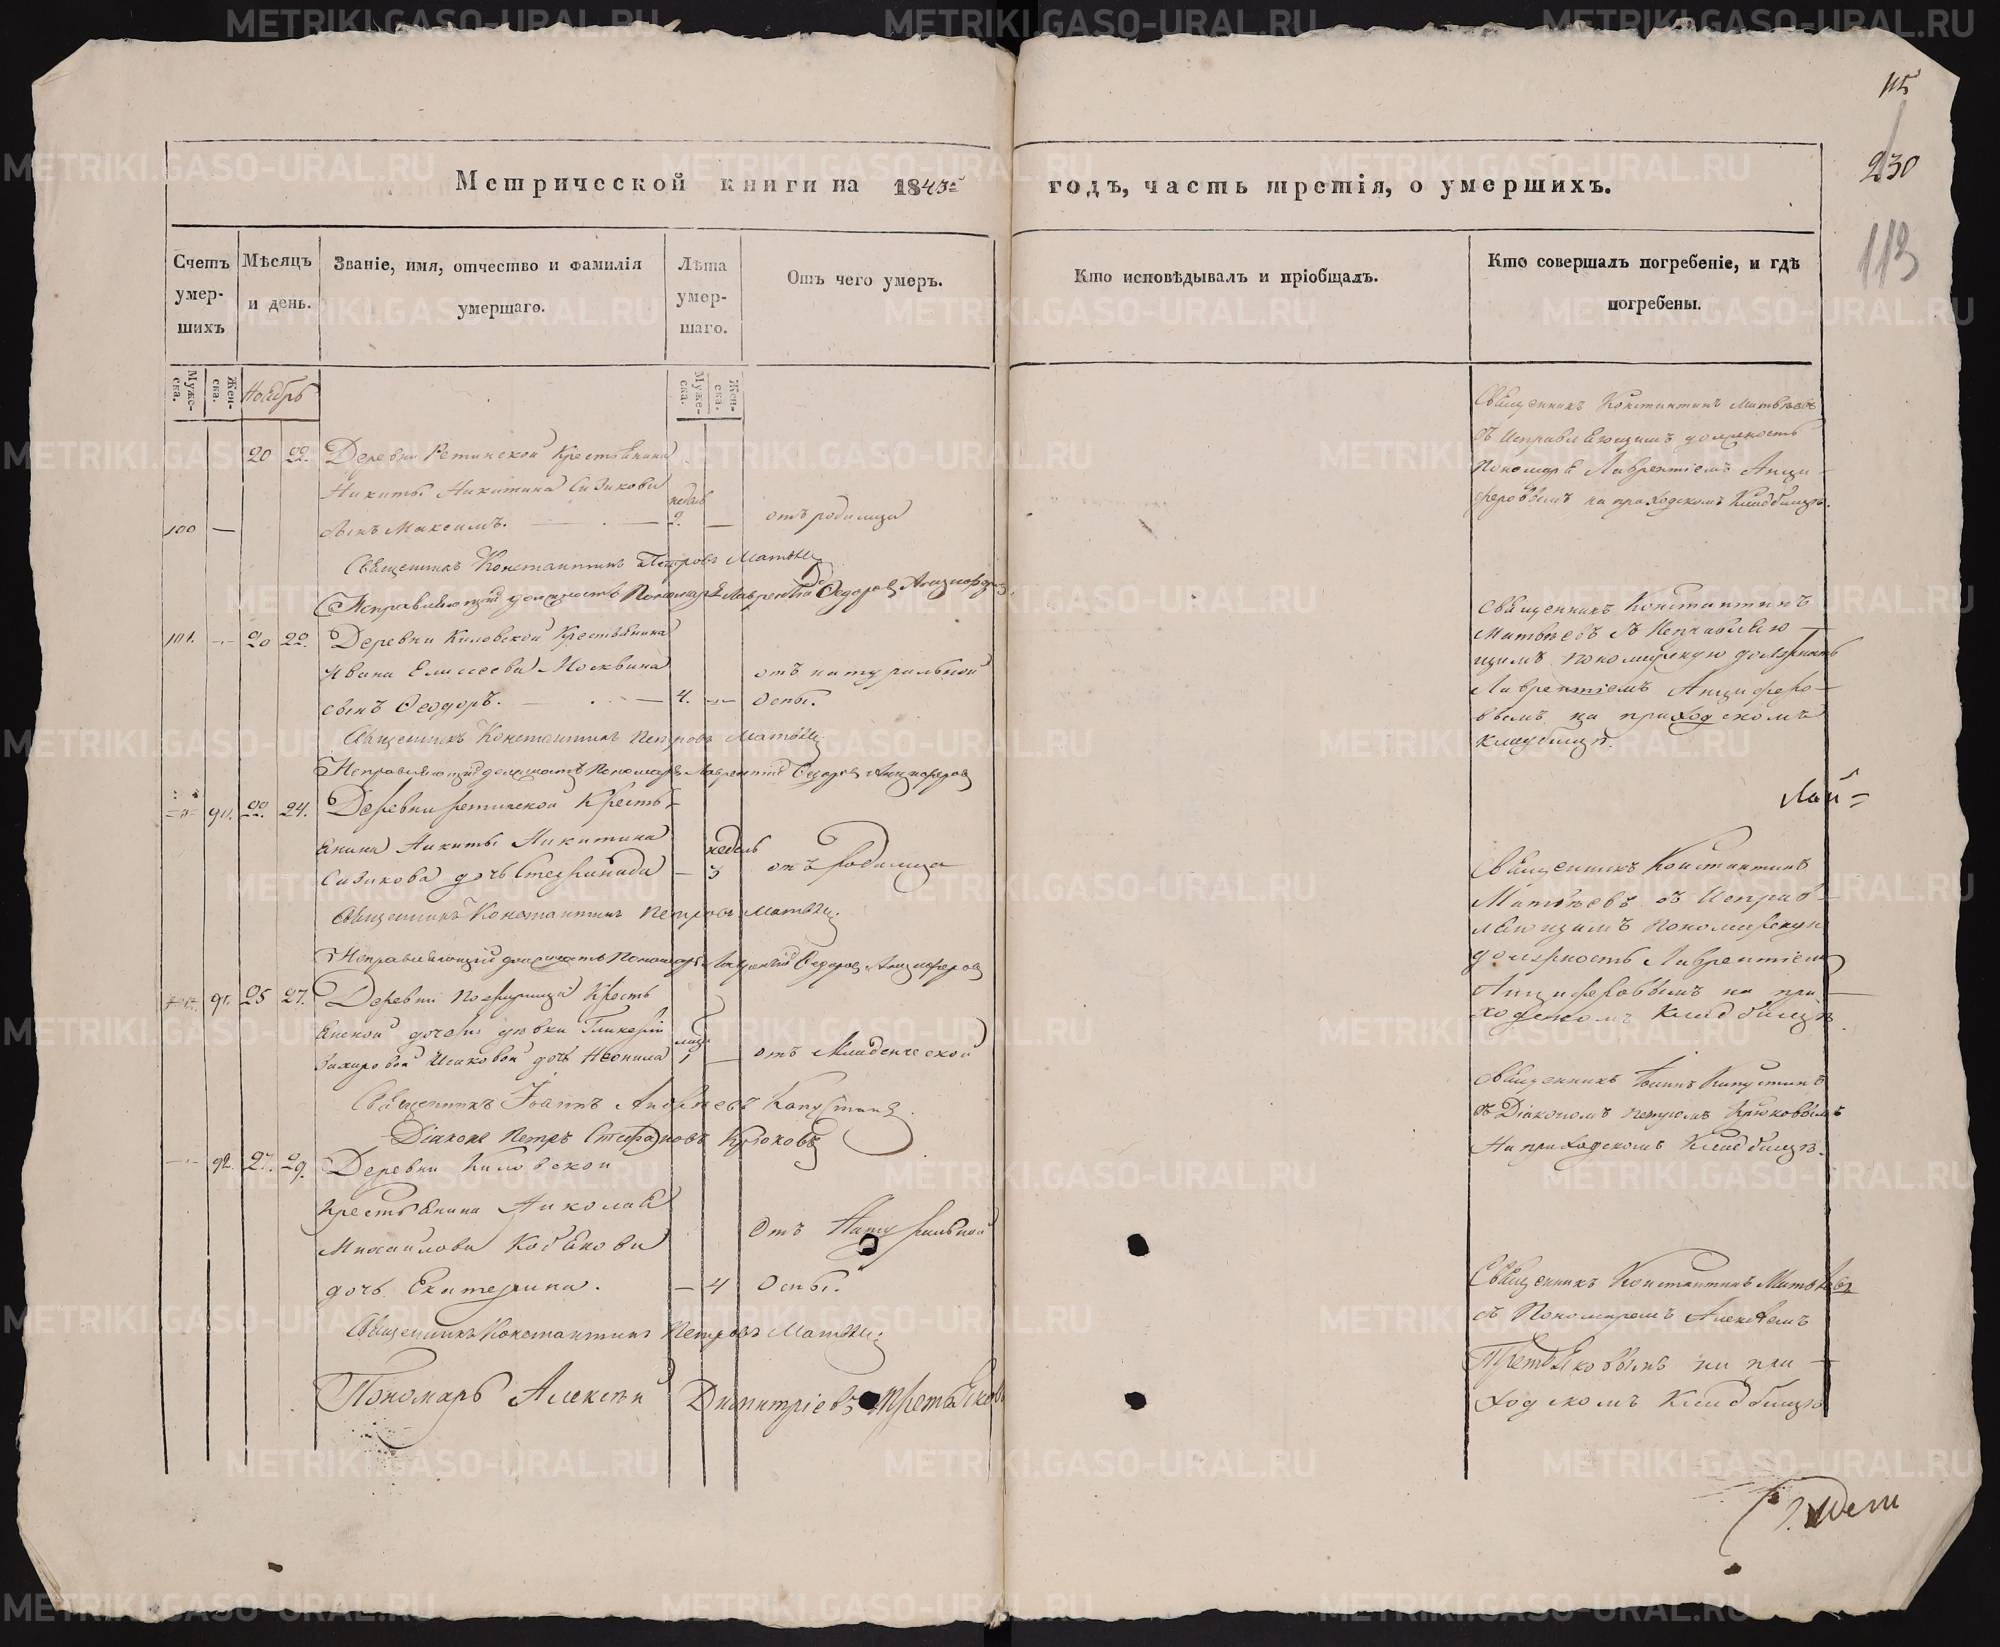 115
230
113
Метрической книги на 1843й годъ, часть третія, о умершихъ.
Счетъ умер-шихъ
Мѣсяцъ и день.
Званіе, имя, отчество и фамилія умершаго.
Лѣта умер-шаго.
Отъ чего умеръ.
Кто исповѣдывалъ и пріобщалъ.
Кто совершалъ погребеніе, и гдѣ погребены.
Муже-ска.
Жен-ска.
Ноябрь
Муже-ска.
Жен-ска.
20 22. Деревни Ретинской Крестьянина
Никиты Никитина Сизикова
недѣль
100 — сынъ Максимъ. — 2. — отъ родимца
Священникъ Константинъ Матвѣевъ
съ Исправляющимъ должность
Пономаря Лаврентіемъ Анци-
феровымъ на приходскомъ Кладбищѣ.
Священникъ Константинъ Петровъ Матвѣевъ
Исправляющій должность Пономаря Лаврентій Ѳедоровъ Анциферовъ
101. — 20 22. Деревни Киловской Крестьянина
Ивана Елисеева Москвина
сынъ Ѳеодоръ. — 4. — отъ натуральной
Оспы.
Священникъ Константинъ
Матвѣевъ съ Исправляю-
щимъ пономарскую должность
Лаврентіемъ Анциферо-
вымъ на приходскомъ
кладбищѣ.
Священникъ Константинъ Петровъ Матвѣевъ
Исправляющій должность Пономаря Лаврентій Ѳедоровъ Анциферовъ
Лай=
90. 22. 24. Деревни ретинской Кресть-
янина Никиты Никитина
недѣль
Сизикова дочь Стефанида — 3 отъ родимца
Священникъ Константинъ
Матвѣевъ съ Исправ-
ляющимъ Пономарскую
должность Лаврентіемъ
Анциферовымъ на при-
ходскомъ Кладбищѣ
Священникъ Константинъ Петровъ Матвѣевъ
Исправляющій должность Пономаря Лаврентій Ѳедоровъ Анциферовъ
91. 25 27. Деревни Кресть
янской дочери дѣвки Гликеріи
Захаровой Исаковой дочь Неонила 1 — отъ Младенческой
Священникъ Іоаннъ Капустинъ
съ Діакономъ Петромъ Крюковымъ
На приходскомъ Кладбищѣ.
Священникъ Іоаннъ Андреевъ Капустинъ.
Діаконъ Петръ Стефановъ Крюковъ
— 92. 27. 29. Деревни Киловской
Крестьянина Николая
Михаилова Кобякова
дочь Екатерина. — 4 Отъ Натуральной
Оспы.
Священникъ Константинъ Матвѣевъ
съ Пономаремъ Алексѣемъ
Третьяковымъ на при-
ходскомъ Кладбищѣ
Священникъ Константинъ Петровъ Матвѣевъ
Пономарь Алексѣй Димитріевъ Третьяковъ
METRIKI.GASO-URAL.RU